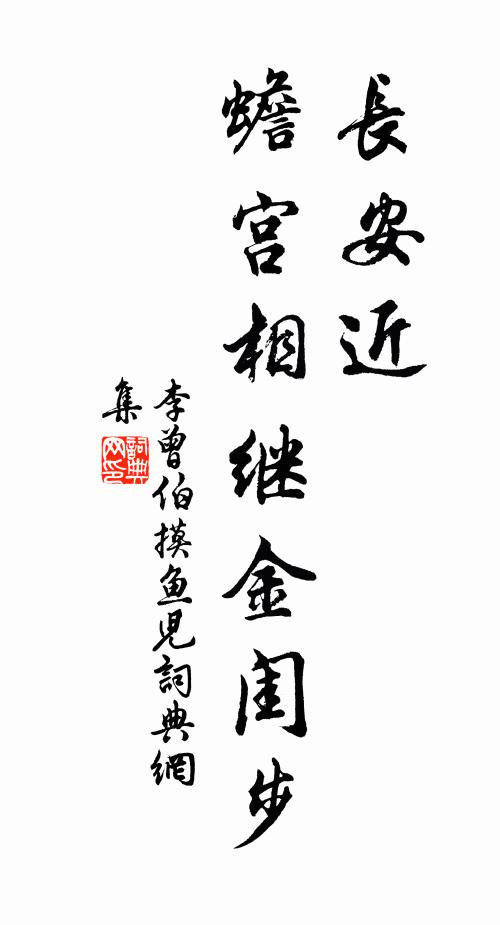 長安近
蟾宫相继金闺步
李曾伯摸鱼児詞典網
集
詞典网印